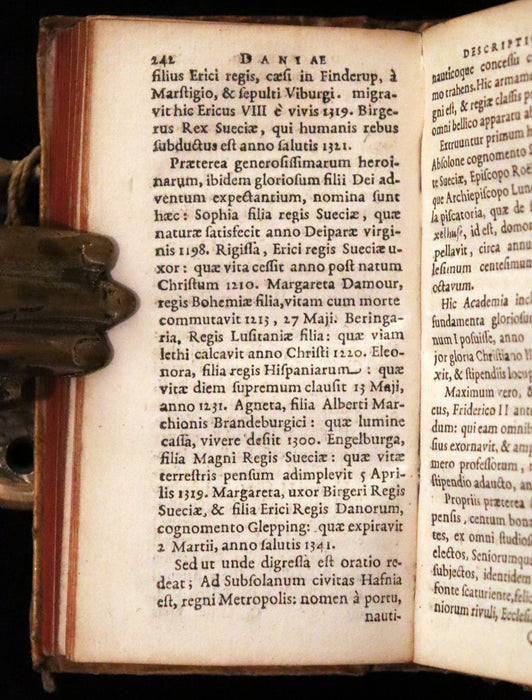 242 DANIAE
filius Erici regis, cæsi in Finderup, à
Marſtigio, & ſepulti Viburgi. migra-
vit hic Ericus VIII è vivis 1319. Birge-
rus Rex Sueciæ, qui humanis rebus
ſubductus eſt anno ſalutis 1321.
Præterea generoſiſſimarum heroi-
narum, ibidem glorioſum filii Dei ad-
ventum expectantium, nomina ſunt
hæc: Sophia filia regis Sueciæ, quæ
naturæ ſatisfecit anno Deiparæ virgi-
nis 1198. Rigiſſa, Erici regis Sueciæ u-
xor: quæ vita ceſſit anno poſt natum
Chriſtum 1210. Margareta Damour,
regis Bohemiæ filia, vitam cum morte
commutavit 1213, 27 Maji. Beringa-
ria, Regis Luſitaniæ filia: quæ viam
lethi calcavit anno Chriſti 1220. Eleo-
nora, filia regis Hiſpaniarum: quæ
vitæ diem ſupremum clauſit 13 Maji,
anno 1231. Agneta, filia Alberti Mar-
chionis Brandeburgici: quæ lumine
caſſa, vivere deſiit 1300. Engelburga,
filia Magni Regis Sueciæ: quæ vitæ
terreſtris penſum adimplevit 5 Apri-
lis 1319. Margareta, uxor Birgeri Regis
Sueciæ, & filia Erici Regis Danorum,
cognomento Glepping: quæ expiravit
2 Martii, anno ſalutis 1341.
Sed ut unde digreſſa eſt oratio re-
deat; Ad Subſolanum civitas Hafnia
eſt, regni Metropolis: nomen à portu,
nauti-
DESCRIPTI
nauticoque conceſſu c
mo trahens. Hic armam
gni eſt, & regiæ claſſis p
omni bellico apparatu a
Extruuntur primum h
Abſolone cognomento S
te Sueciæ, Epiſcopo Roe
que Archiepiſcopo Lund
la piſcatoria, quæ de ſ
xelhuſe, id eſt, domo
pellavit, circa annu
leſimum centeſimum
octavum.
Hic Academia incl
fundamenta glorioſu
num I poſuiſſe, anno
jor gloria Chriſtiano N
xit, & ſtipendiis locup
Maximum vero, &
cus, Friderico II ant
dum: qui eam omnib
ſius exornavit, & amp
mero profeſſorum,
ſtipendio adaucto, an
Propriis præterea ſ
penſis, centum bona
tes, ex omni ſtudioſ
electos, Seniorumque
ſubjectos, identidem
fonte ſcaturiente, felic
niorum rivuli, Eccleſ